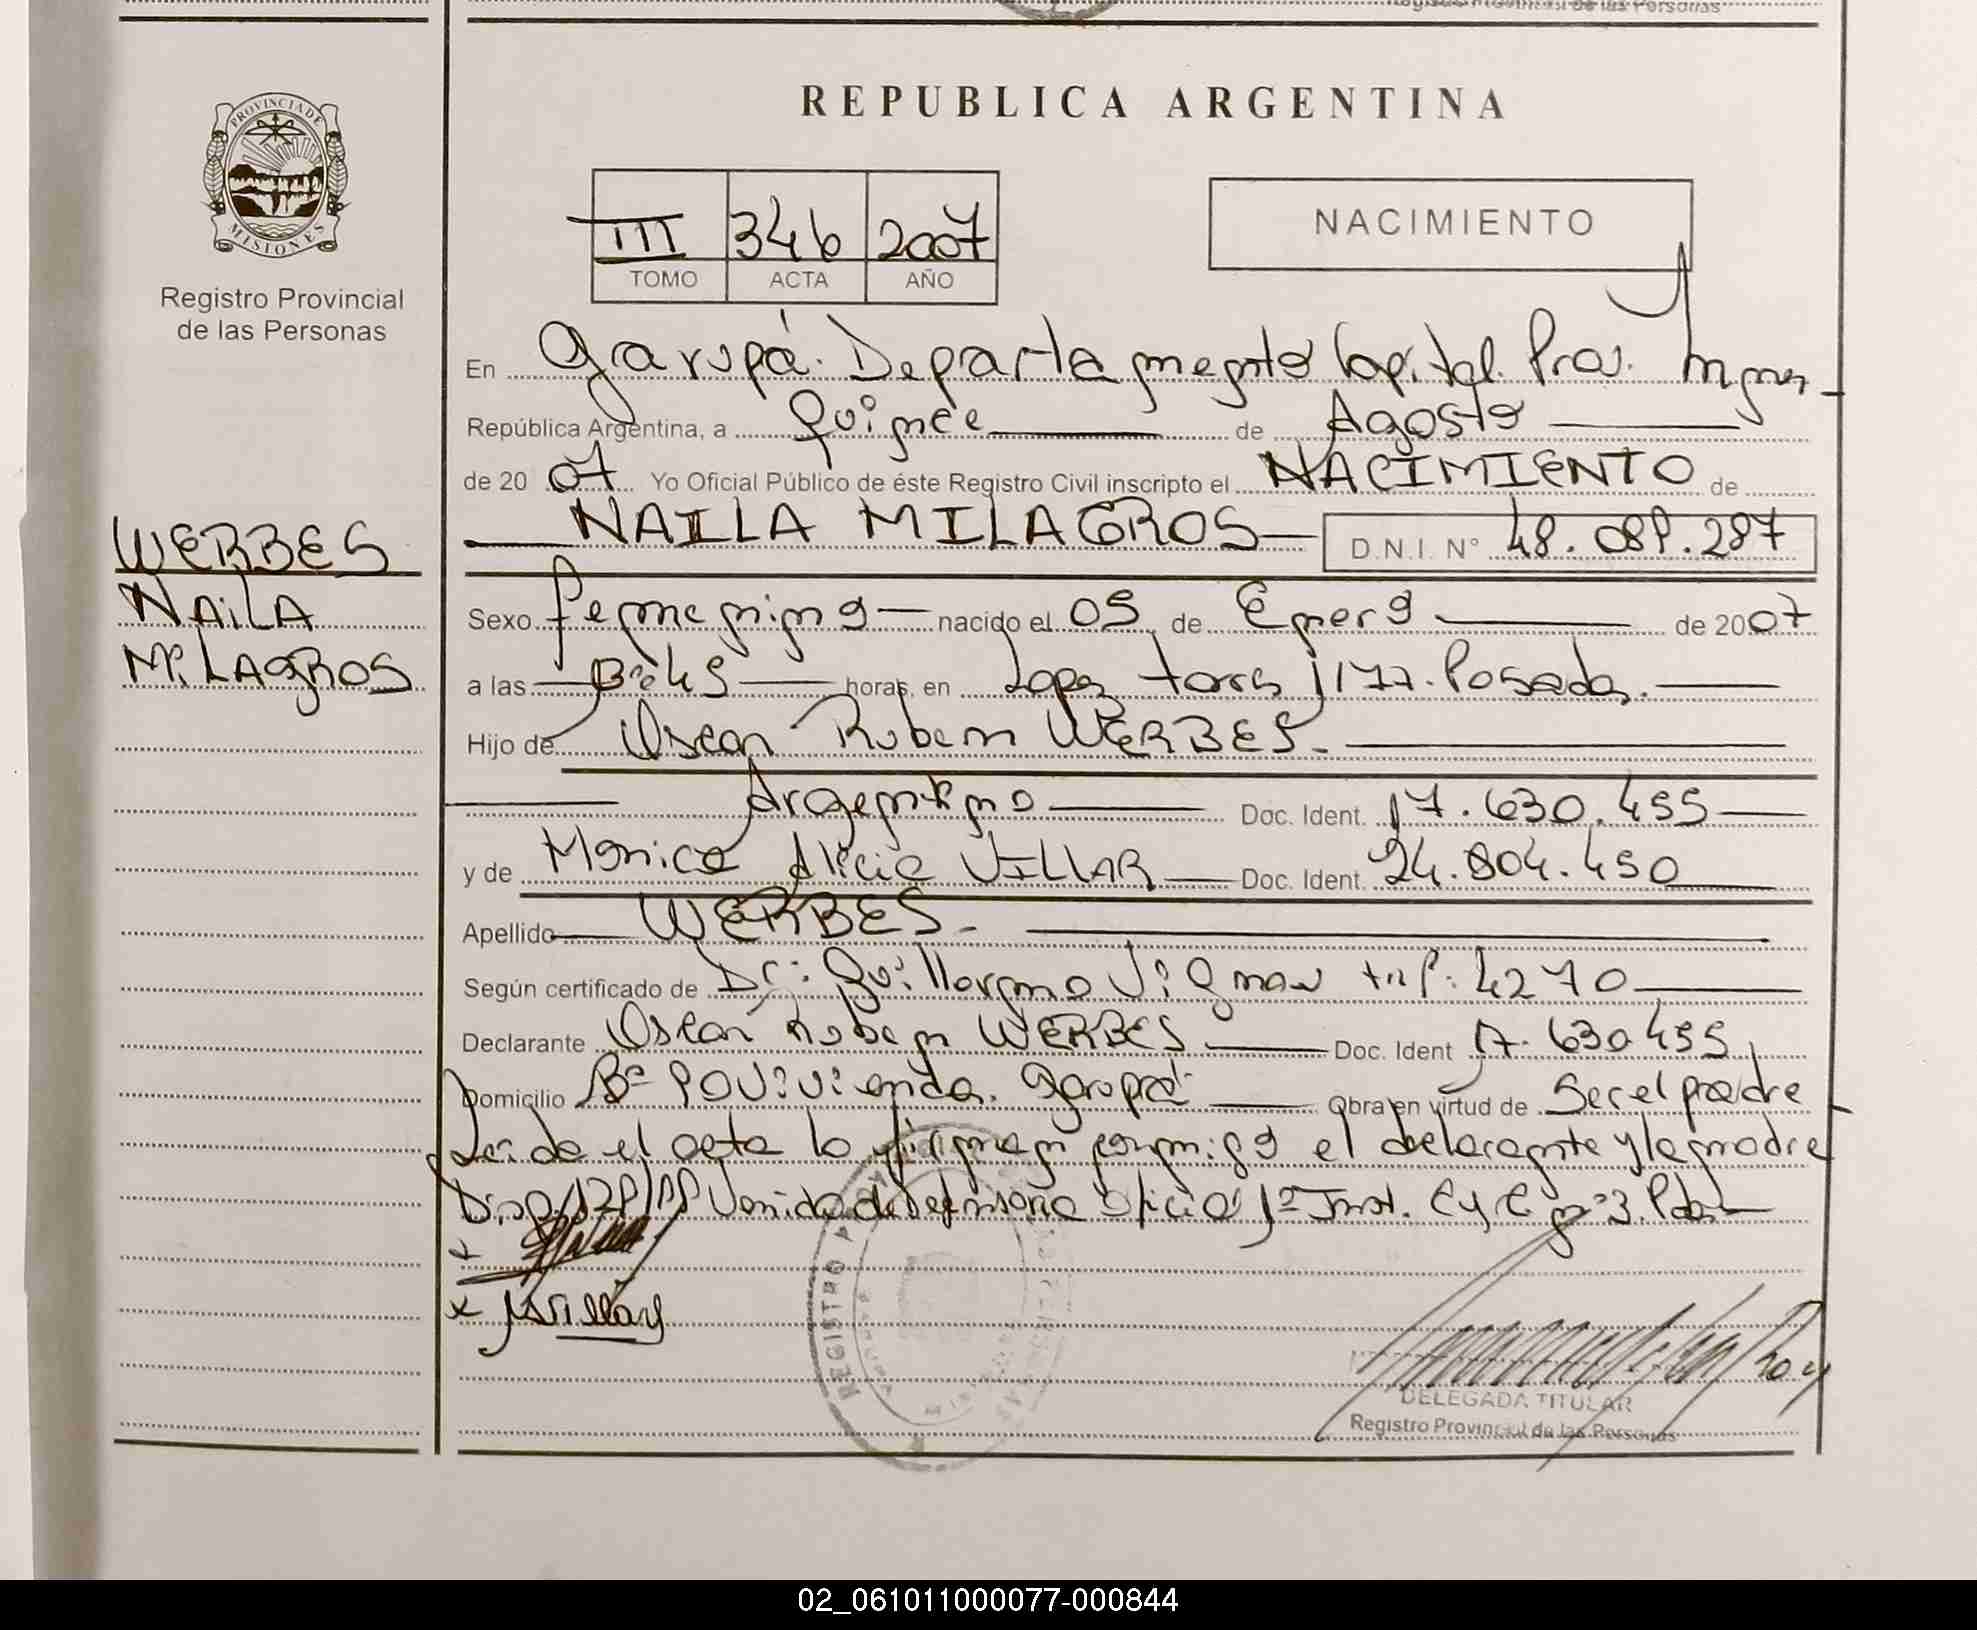 Registro Provincial de las Personas
PROVINCIA DE
MISIONES
Registro Provincial
de las Personas
REPUBLICA ARGENTINA
III 346 2007
TOMO ACTA AÑO
NACIMIENTO
En Garupá. Departamento Capital. Prov. Mnes
República Argentina, a Quince de Agosto
de 2007 Yo Oficial Público de éste Registro Civil inscripto el NACIMIENTO de
NAILA MILAGROS D.N.I. N° 48.089.287
WERBES
NAiLA
MiLAGROS
Sexo femenino nacido el 05 de Enero de 2007
a las horas, en Lopez torres 1177. Posadas.
Hijo de Oscar Ruben WERBES.
Argentino Doc. Ident. 17.630.455
y de Monica Alicia VILLAR Doc. Ident. 24.804.450
Apellido WERBES.
Según certificado de Dr: Guillermo 4270
Declarante Oscar Ruben WERBES Doc. Ident 17.630.455
Domicilio B° Viviendas. Garupá Obra en virtud de Ser el padre
Leida el acta la firman conmigo el declarante y la madre
Disp. Venido de Defensoria Oficial 1ª Inst. C y C n°3. Pdas
x
x MVillar
REGISTRO
DELEGADA TITULAR
Registro Provincial de las Personas
02_061011000077-000844